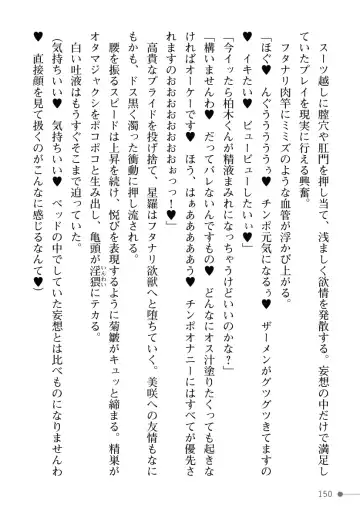 スーツ越しに膣穴や肛門を押し当て、浅ましく欲情を発散する。妄想の中だけで満足し
ていたプレイを現実に行える興奮。
フタナリ肉竿にミミズのような血管が浮かび上がる。
「ほぐ♥　んぐううううぅ♥　チンポ元気になるぅ♥　ザーメンがグツグツきてますの
♥　イキたい♥　ビュービューしたいぃ♥」
「今イッたら柏木くんが精液まみれになっちゃうけどいいのかな？」
「構いませんわ♥　だってバレないんですもの♥　どんなにオス汁塗りたくっても起きな
ければオーケーです♥　ほう、はぁぁあああう♥　チンポオナニーにはすべてが優先さ
れますのおおおおおおおぉっっ！♥」
高貴なプライドを投げ捨て、星羅はフタナリ欲獣へと堕ちていく。美咲への友情もなに
もかも、ドス黒く濁った衝動に押し流される。
腰を振るスピードは上昇を続け、悦びを表現するように菊皺がキュッと締まる。精巣が
オタマジャクシをボコボコと生み出し、亀頭が淫猥にテカる。
いんわい
白い吐液はもうすぐそこまで迫っていた。
（気持ちいい♥　気持ちいい♥　ベッドの中でしていた妄想とは比べものになりませんわ
♥　直接顔を見て扱くのがこんなに感じるなんて♥）
150